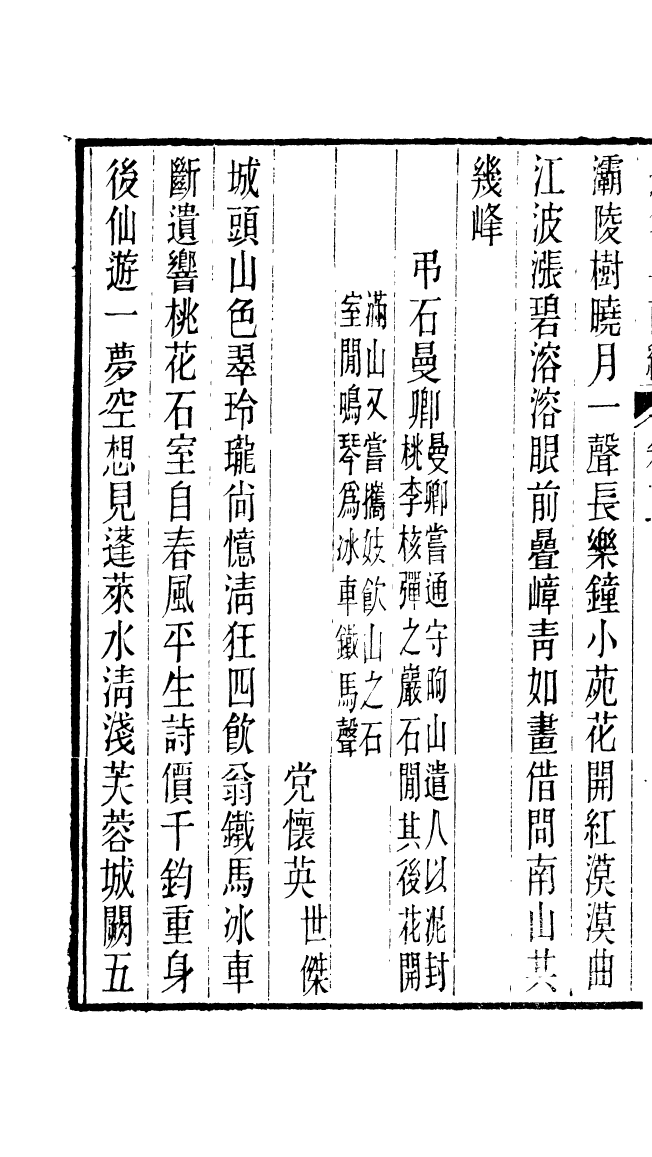 灞陵樹曉月一聲長樂鐘小苑花開紅漠漠曲
江波漲碧溶溶眼前疊嶂靑如畫借問南山共
幾峰
弔石曼卿
曼卿嘗通守朐山遣人以泥封
桃李核彈之巖石閒其後花開
滿山又嘗攜妓飮山之石
室閒鳴琴爲冰車鐵馬聲
党懷英世傑
城頭山色翠玲瓏尙憶淸狂四飮翁鐵馬冰車
斷遺響桃花石室自春風平生詩價千鈞重身
後仙遊一夢空想見蓬萊水淸淺芙蓉城闕五